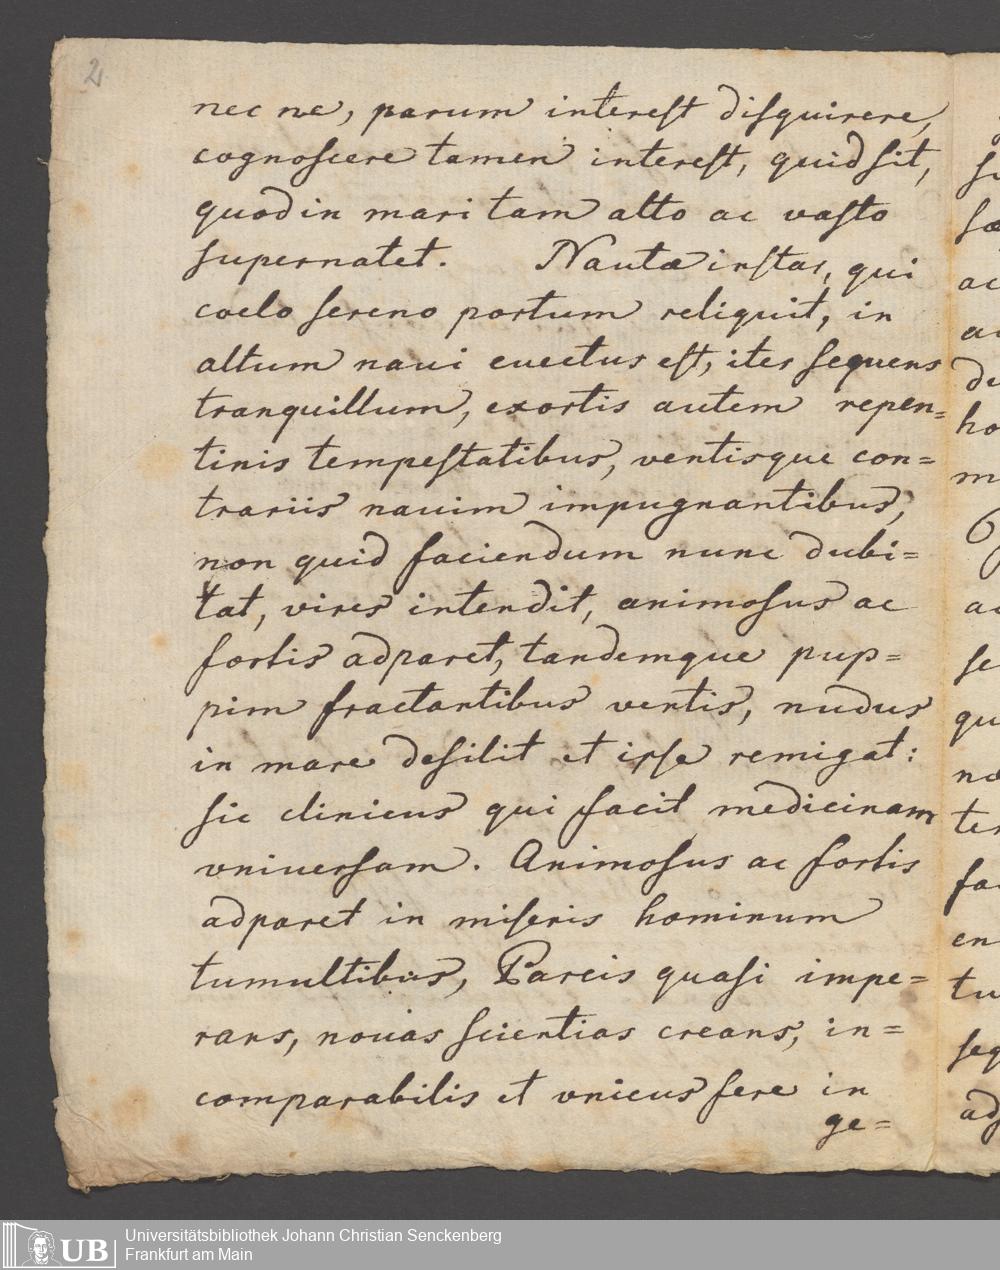 2
nec ne, parum interest disquirere,
cognoscere tamen interest, quid sit,
quod in mari tam alto ac vasto
supernatet. Nautæ instar, qui
coelo sereno portum reliquit, in
altum naui euectus est, iter sequens
tranquillum, exortis autem repen=
tinis tempestatibus, ventisque con=
trariis nauim impugnantibus,
non quid faciendum nunc dubi=
tat, vires intendit, animosus ac
fortis adparet, tandemque pup=
pim fractantibus ventis, nudus
in mare desilit et ipse remigat:
sic clinicus qui facit medicinam
vniuersam. Animosus ac fortis
adparet in miseris hominum
tumultibus, Parcis quasi impe=
rans, nouas scientias creans, in=
comparabilis et vnicus fere in
ge=
UB
Universitätsbibliothek Johann Christian Senckenberg
Frankfurt am Main